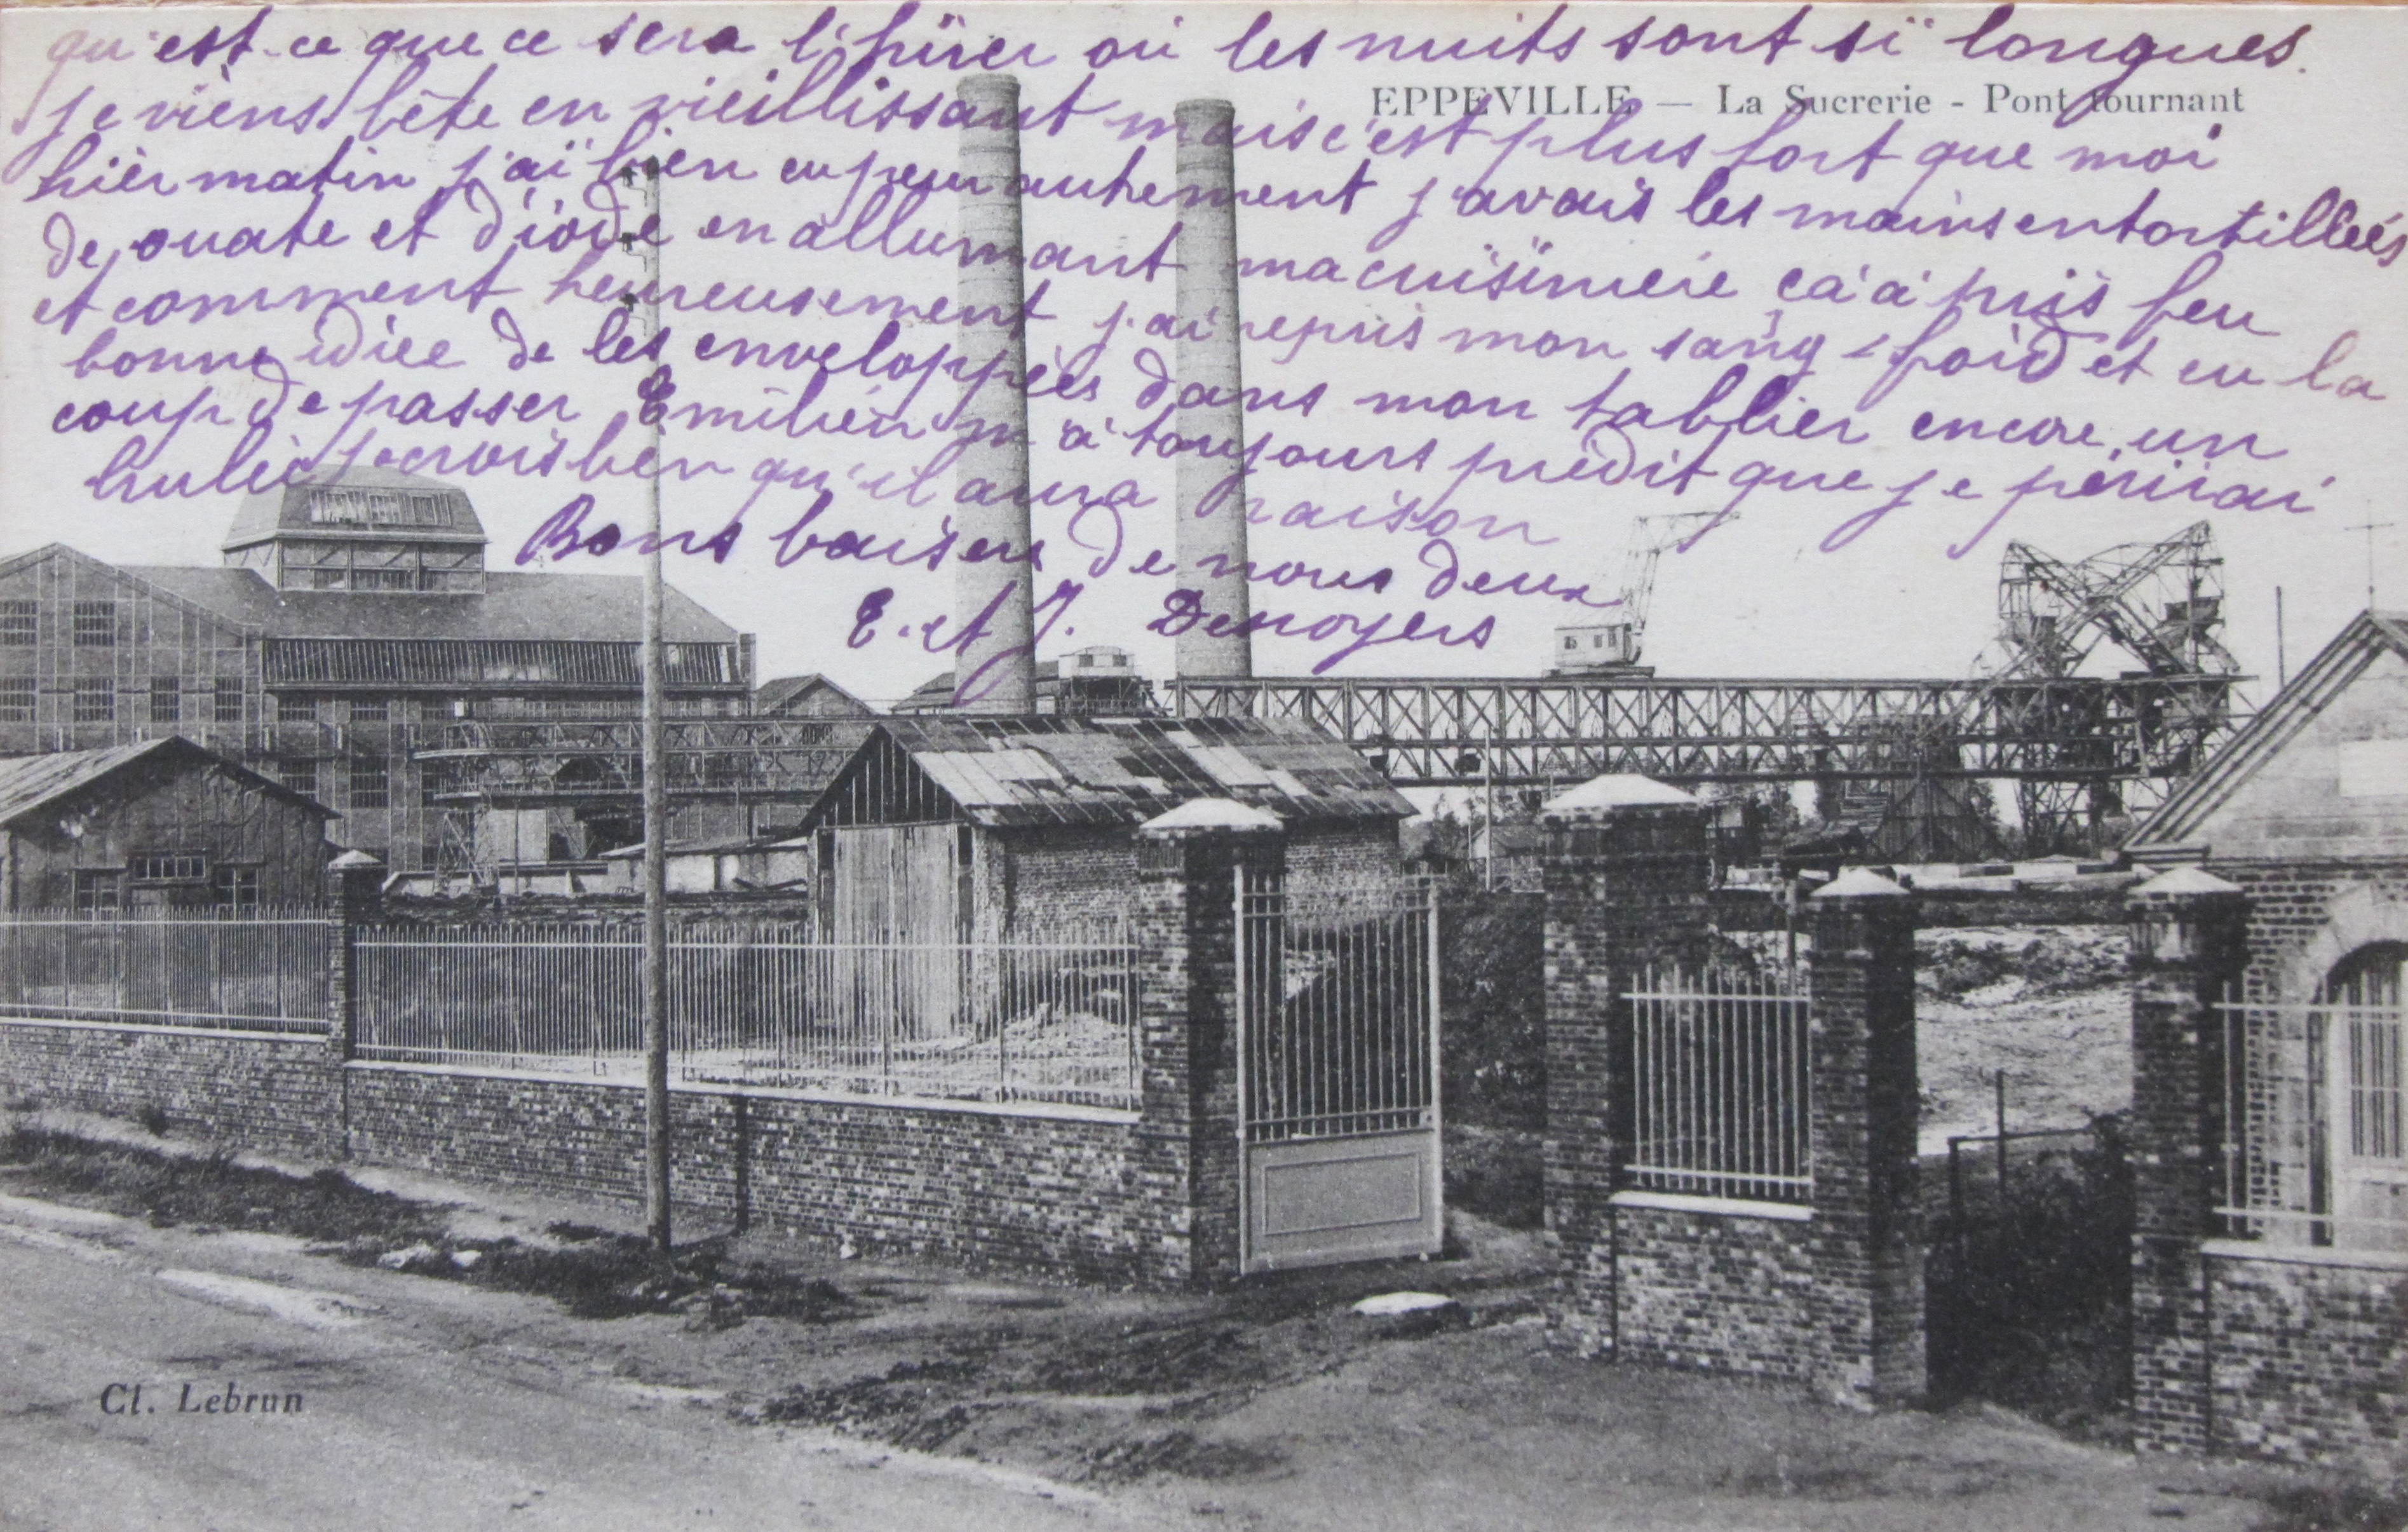 qu'est-ce que ce sera l'hiver où les nuits sont si longues.
EPPEVILLE — La Sucrerie - Pont tournant
je viens bête en vieillissant mais c'est plus fort que moi
hier matin j'ai bien eu peur autrement j'avais les mains entortillées
de ouate et d'iode en allumant ma cuisinière ça a pris feu
et comment heureusement j'ai repris mon sang-froid et eu la
bonne idiée de les enveloppées dans mon tablier encore un
coup de passer Emilien m'a toujours prédit que je périrai
brulée je crois bien qu'il aura raison
Bons baisers de nous deux
E. et J. Desnoyers
Cl. Lebrun